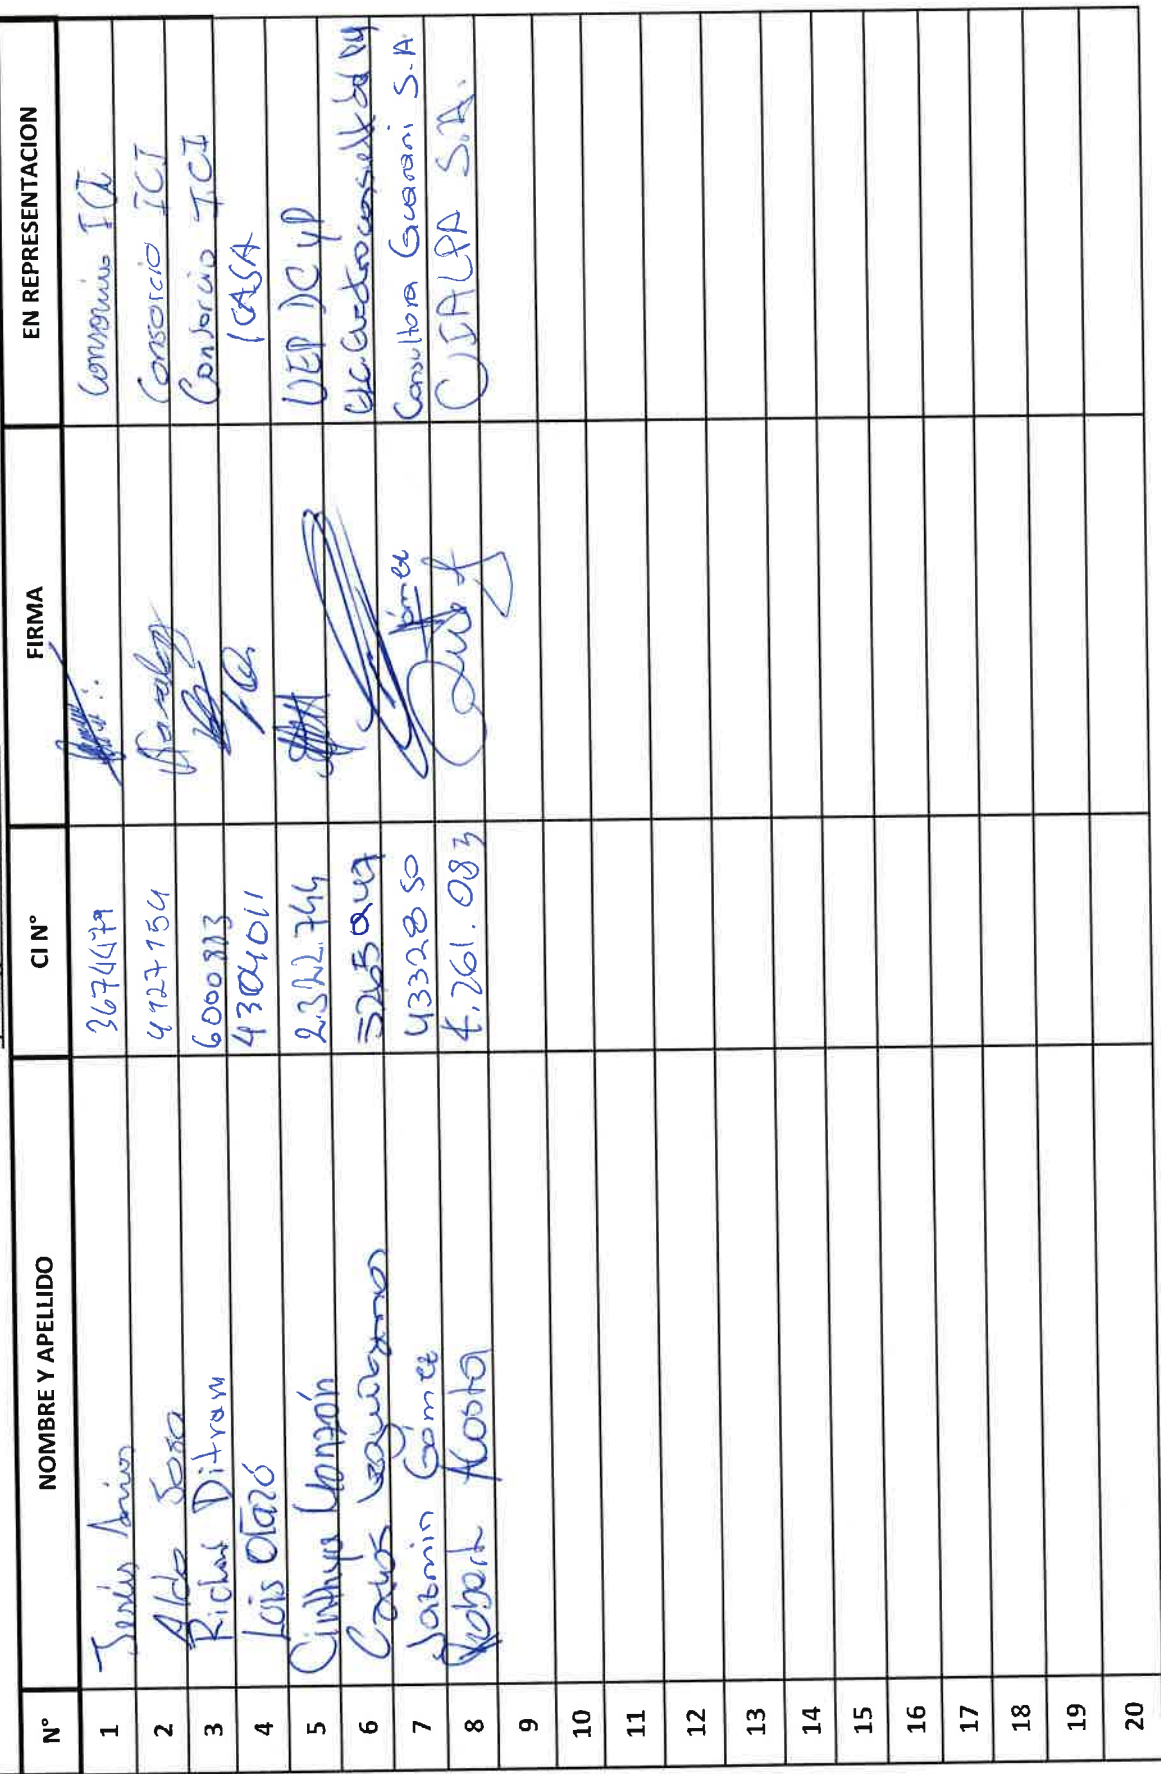 N° NOMBRE Y APELLIDO CI N° FIRMA EN REPRESENTACION
1 Jesús 3674479 Consorcio ICI
2 Aldo Sosa 4927154 Consorcio ICI
3 Richar Ditram 6000883 Consorcio ICI
4 Luis Otazó 4304011 ICASA
5 Cinthya Monzón 2.322.744 UEP DC yP
6 Carlos 3265247
7 Jazmin Gómez 4332850 Gómez Consultora Guarani S.A
8 Robert Acosta 4.261.083 CIALPA S.A.
9
10
11
12
13
14
15
16
17
18
19
20